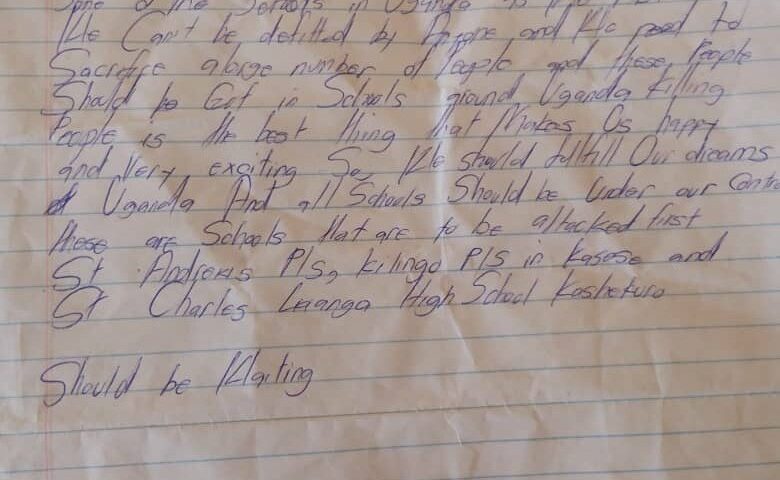 of the Schools in Uganda
We Can't be defitted by Anyone and We need to
Sacrifice a large number of People and these People
Should be Got in Schools ground Uganda killing
People is the best thing that Makes Us happy
and Very exciting So, We should fulfill Our dreams
Uganda And all Schools Should be Under our Contro
these are Schools that are to be attacked first
St Andrews P/S, kilingo P/S in kasese and
St Charles Lwanga High School Kashekuro
Should be Waiting